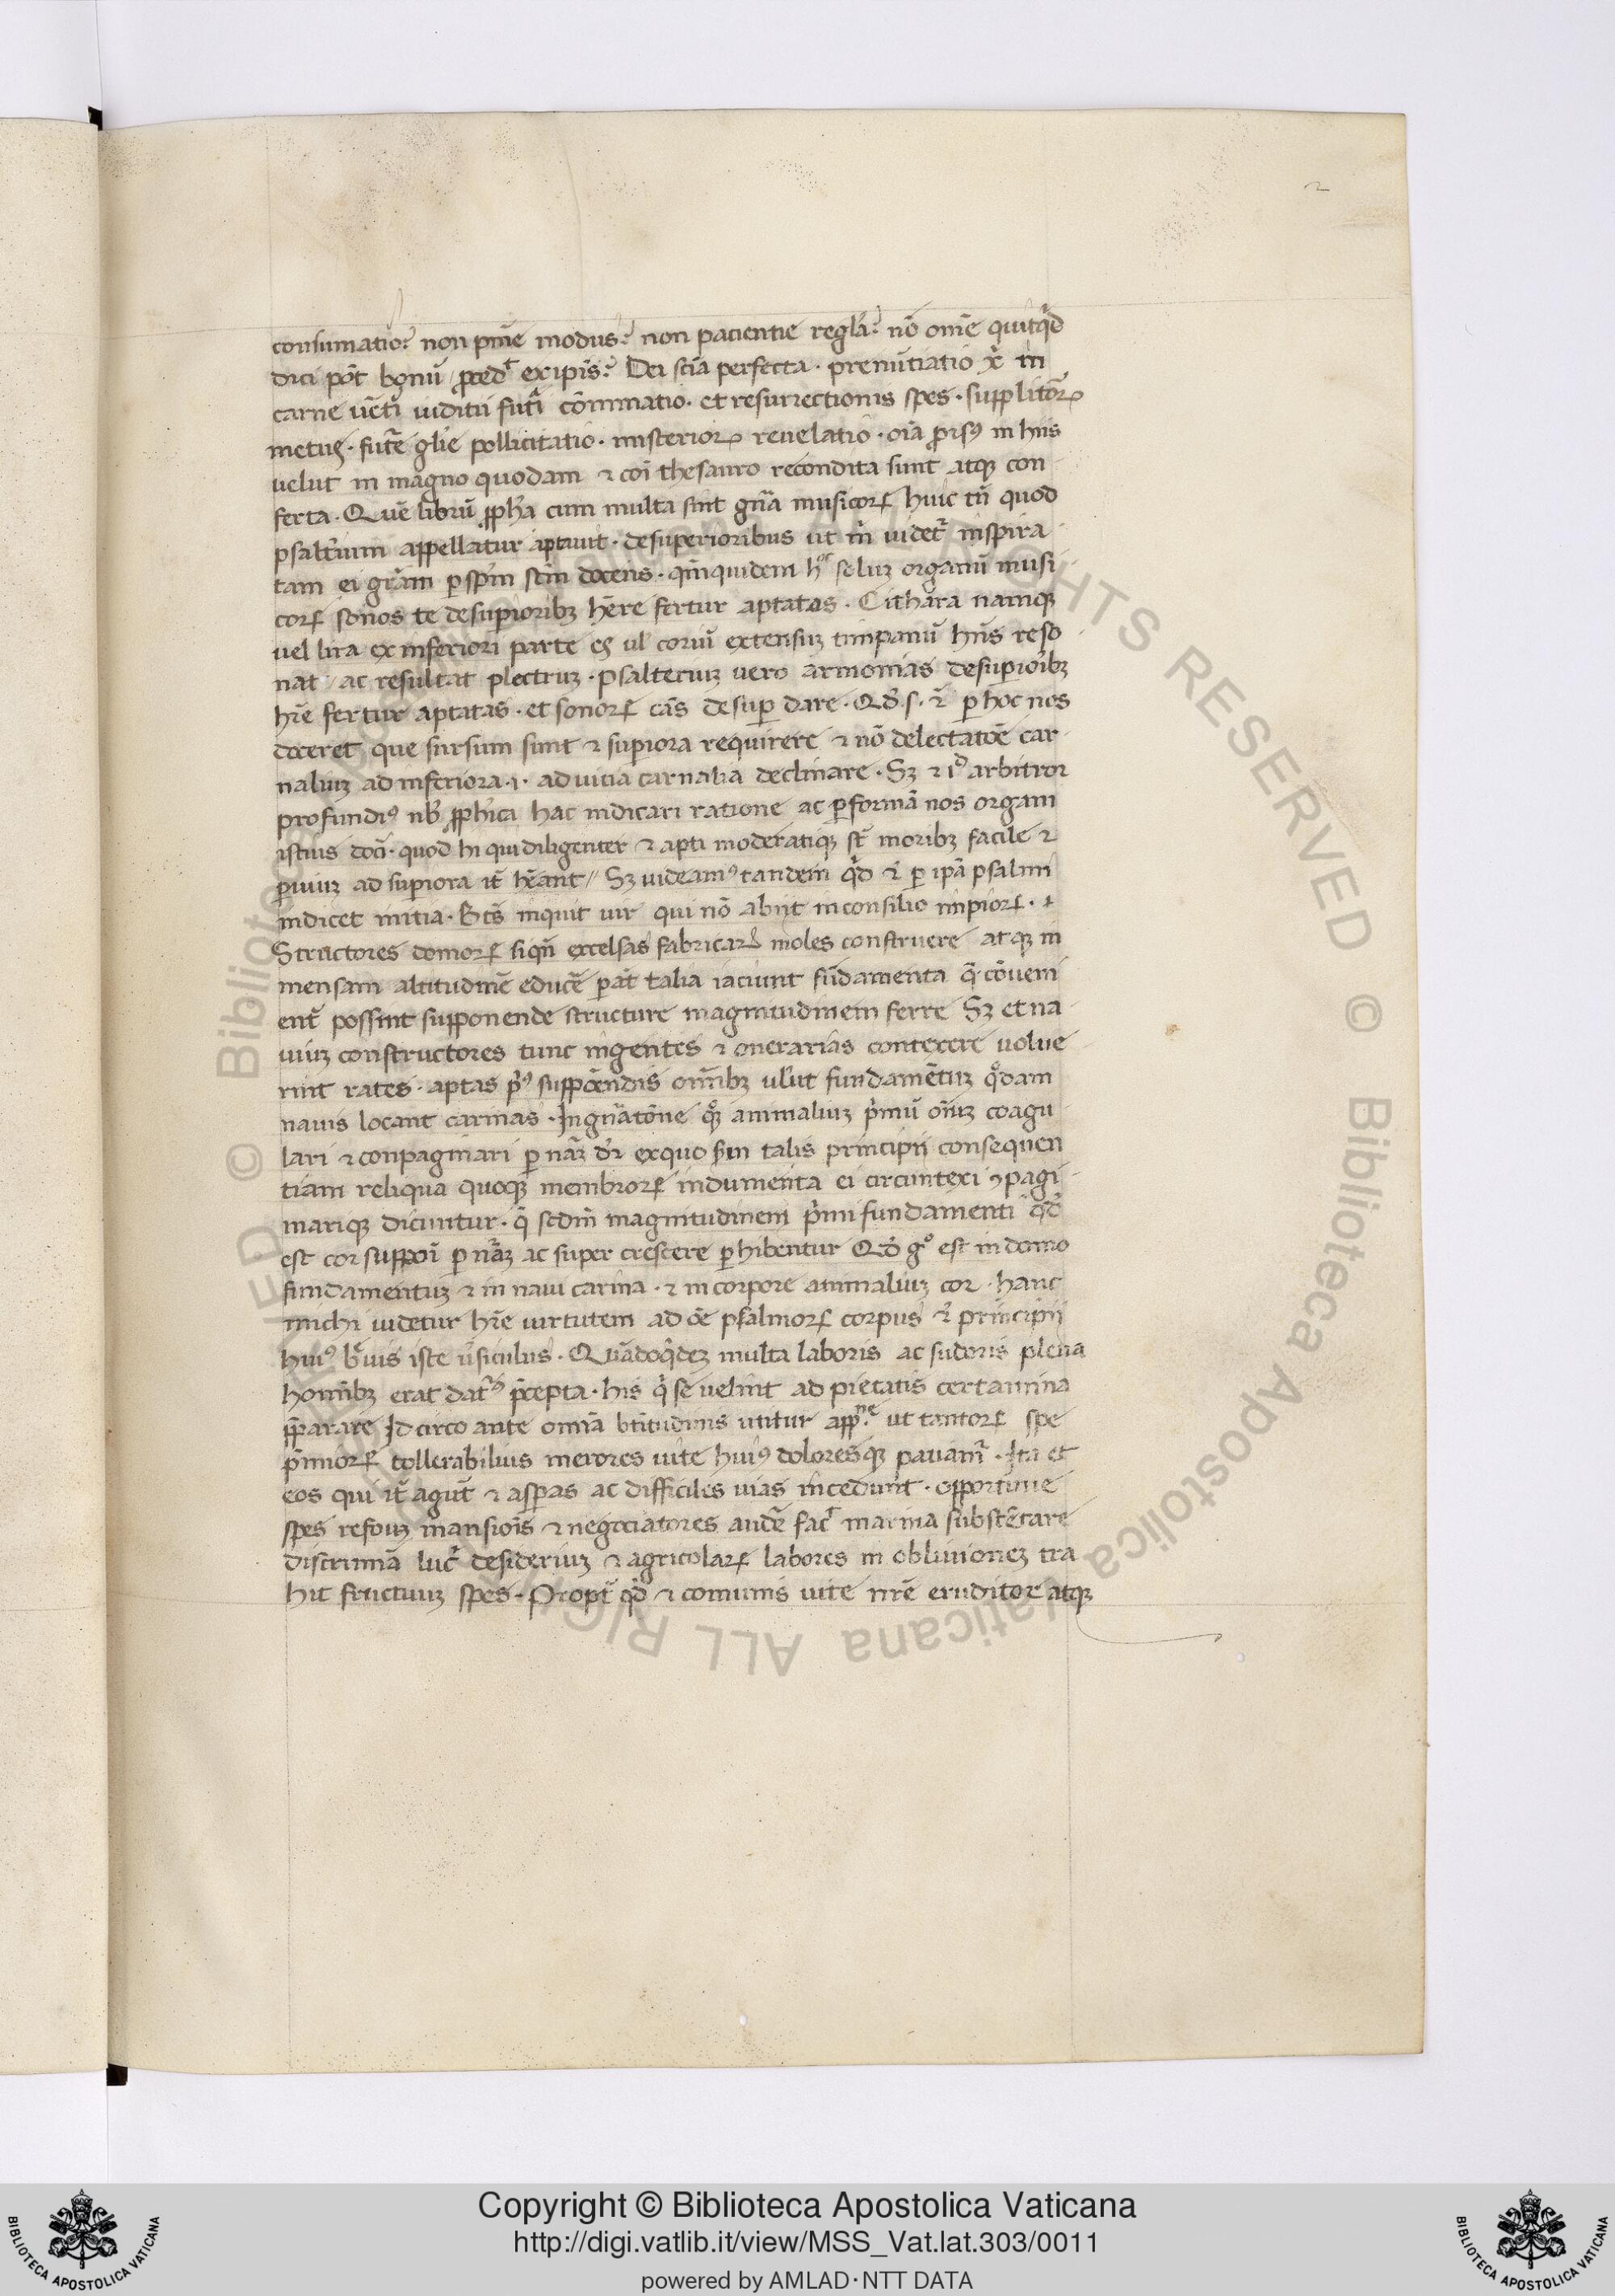 2
consumatio? non pnīe modus? non pacientie regla? nō om̄e quitq̄d
dici pōt bonū p̄ced̄t ex ip̄is? Dei sciā perfecta. prenūtiatio x̄ in
carne uēti iuditii futi cōminatio. et resurrectionis spes. supplitiorꝝ
metus. futr̄e glīe pollicitatio. misteriorꝝ reuelatio. oīa ꝓrisꝰ in hiis
uelut in magno quodam ⁊ coī thesauro recondita sunt atqꝫ con
ferta. Quē librū ꝓph̄a cum multa sint gn̄a musicorꝝ huic tn̄ quod
psalt̄ium appellatur aptauit. desuperioribus ut m̄ uidet̄ inspira
tam ei grām ꝑ sp̄m scm̄ docens. qm̄quidem hoc soluꝫ organū musi
corꝝ sonos te desupioribꝫ hēre fertur aptatos. Cithara namqꝫ
uel lira ex inferiori parte es ul' coriū extensuꝫ timpanū hn̄s reso
nat ac resultat plectruꝫ. Psalteriuꝫ uero armonias desupioribꝫ
hr̄e fertur aptatas. et sonorꝝ cās desuꝑ dare. Qđ. s. ⁊ ꝑ hoc nos
doceret que sursum sunt ⁊ supiora requirere ⁊ nō delectatōe car
naliuꝫ ad inferiora .i. ad uitia carnalia declinare. Sꝫ ⁊ iđ arbitror
profundiꝰ nb̄ ꝓph̄ica hac indicari ratione ac ꝑ formā nos organi
istius doc̄i. quod hi qui diligenter ⁊ apti moderatiqꝫ st̄ moribꝫ facile ⁊
ꝑuiuꝫ ad supiora it̄ hēant // Sꝫ uideamꝰ tandem qd̄ ⁊ ꝑ ipā psalmi
indicet initia. Bt̄s inquit uir qui nō abiit in consilio impiorꝝ. ⁊
Structores domorꝝ siqn̄ excelsas fabricarꝝ moles construere atqꝫ in
mensam altitudinē educē parāt talia iaciunt fūdamenta q̄ cōueni
ent̄ possint supponende structure magnitudinem ferre Sꝫ et na
uiuꝫ constructores tunc ingentes ⁊ onerarias contexere uolue
rint rates. aptas pꝰ suppōendis onīibꝫ ul'ut fundamētuꝫ qͦdam
nauis locant carinas. In gn̄atōne qͦꝫ animaliuꝫ pͥmū om̄iꝫ coagu
lari ⁊ conpaginari ꝑ nāꝫ dr̄ ex quo scd̄m talis principii consequen
tiam reliqua quoqꝫ membrorꝝ indumenta ei circuntexi ꝯpagi
nariqꝫ dicuntur. q̄ sedm̄ magnitudinem pͥmi fundamenti qd̄
est cor suppoī ꝑ nāꝫ ac super crescere ꝑhibentur Qđ gͦ est in domo
fundamentuꝫ ⁊ in naui carina. ⁊ in corpore animaliuꝫ cor. hanc
michi uidetur hr̄e uirtutem ad ōe psalmorꝝ corpus ⁊ principii
huiꝰ b̄uis iste ūsiculus. Quādoqͥdeꝫ multa laboris ac sudoris plena
hominibꝫ erat dat̄ꝰ p̄cepta. his qͥ se uelint ad pietatis certamina
p̄parare Idcirco ante omīa bt̄itudinis utitur app̄ne ut tantorꝝ spe
pͥmiorꝝ tollerabilius merores uite huiꝰ doloresqꝫ patiam̄. Ita et
eos qui it̄ agūt ⁊ asꝑas ac difficiles uias incedunt. opportune
spes refouꝫ mansiois ⁊ negociatores audē fac̄ marina substētare
discrimīa luc̄ desideriuꝫ ⁊ agricolarꝝ labores in obliuioneꝫ tra
hit fructuuꝫ spes. Propt̄ qđ ⁊ comunis uite nr̄e eruditor atqꝫ
© Biblioteca Apostolica Vaticana ALL RIGHTS RESERVED © Biblioteca Apostolica Vaticana ALL RIGHTS RESERVED
Copyright © Biblioteca Apostolica Vaticana
http://digi.vatlib.it/view/MSS_Vat.lat.303/0011
powered by AMLAD·NTT DATA
BIBLIOTECA APOSTOLICA VATICANA
BIBLIOTECA APOSTOLICA VATICANA